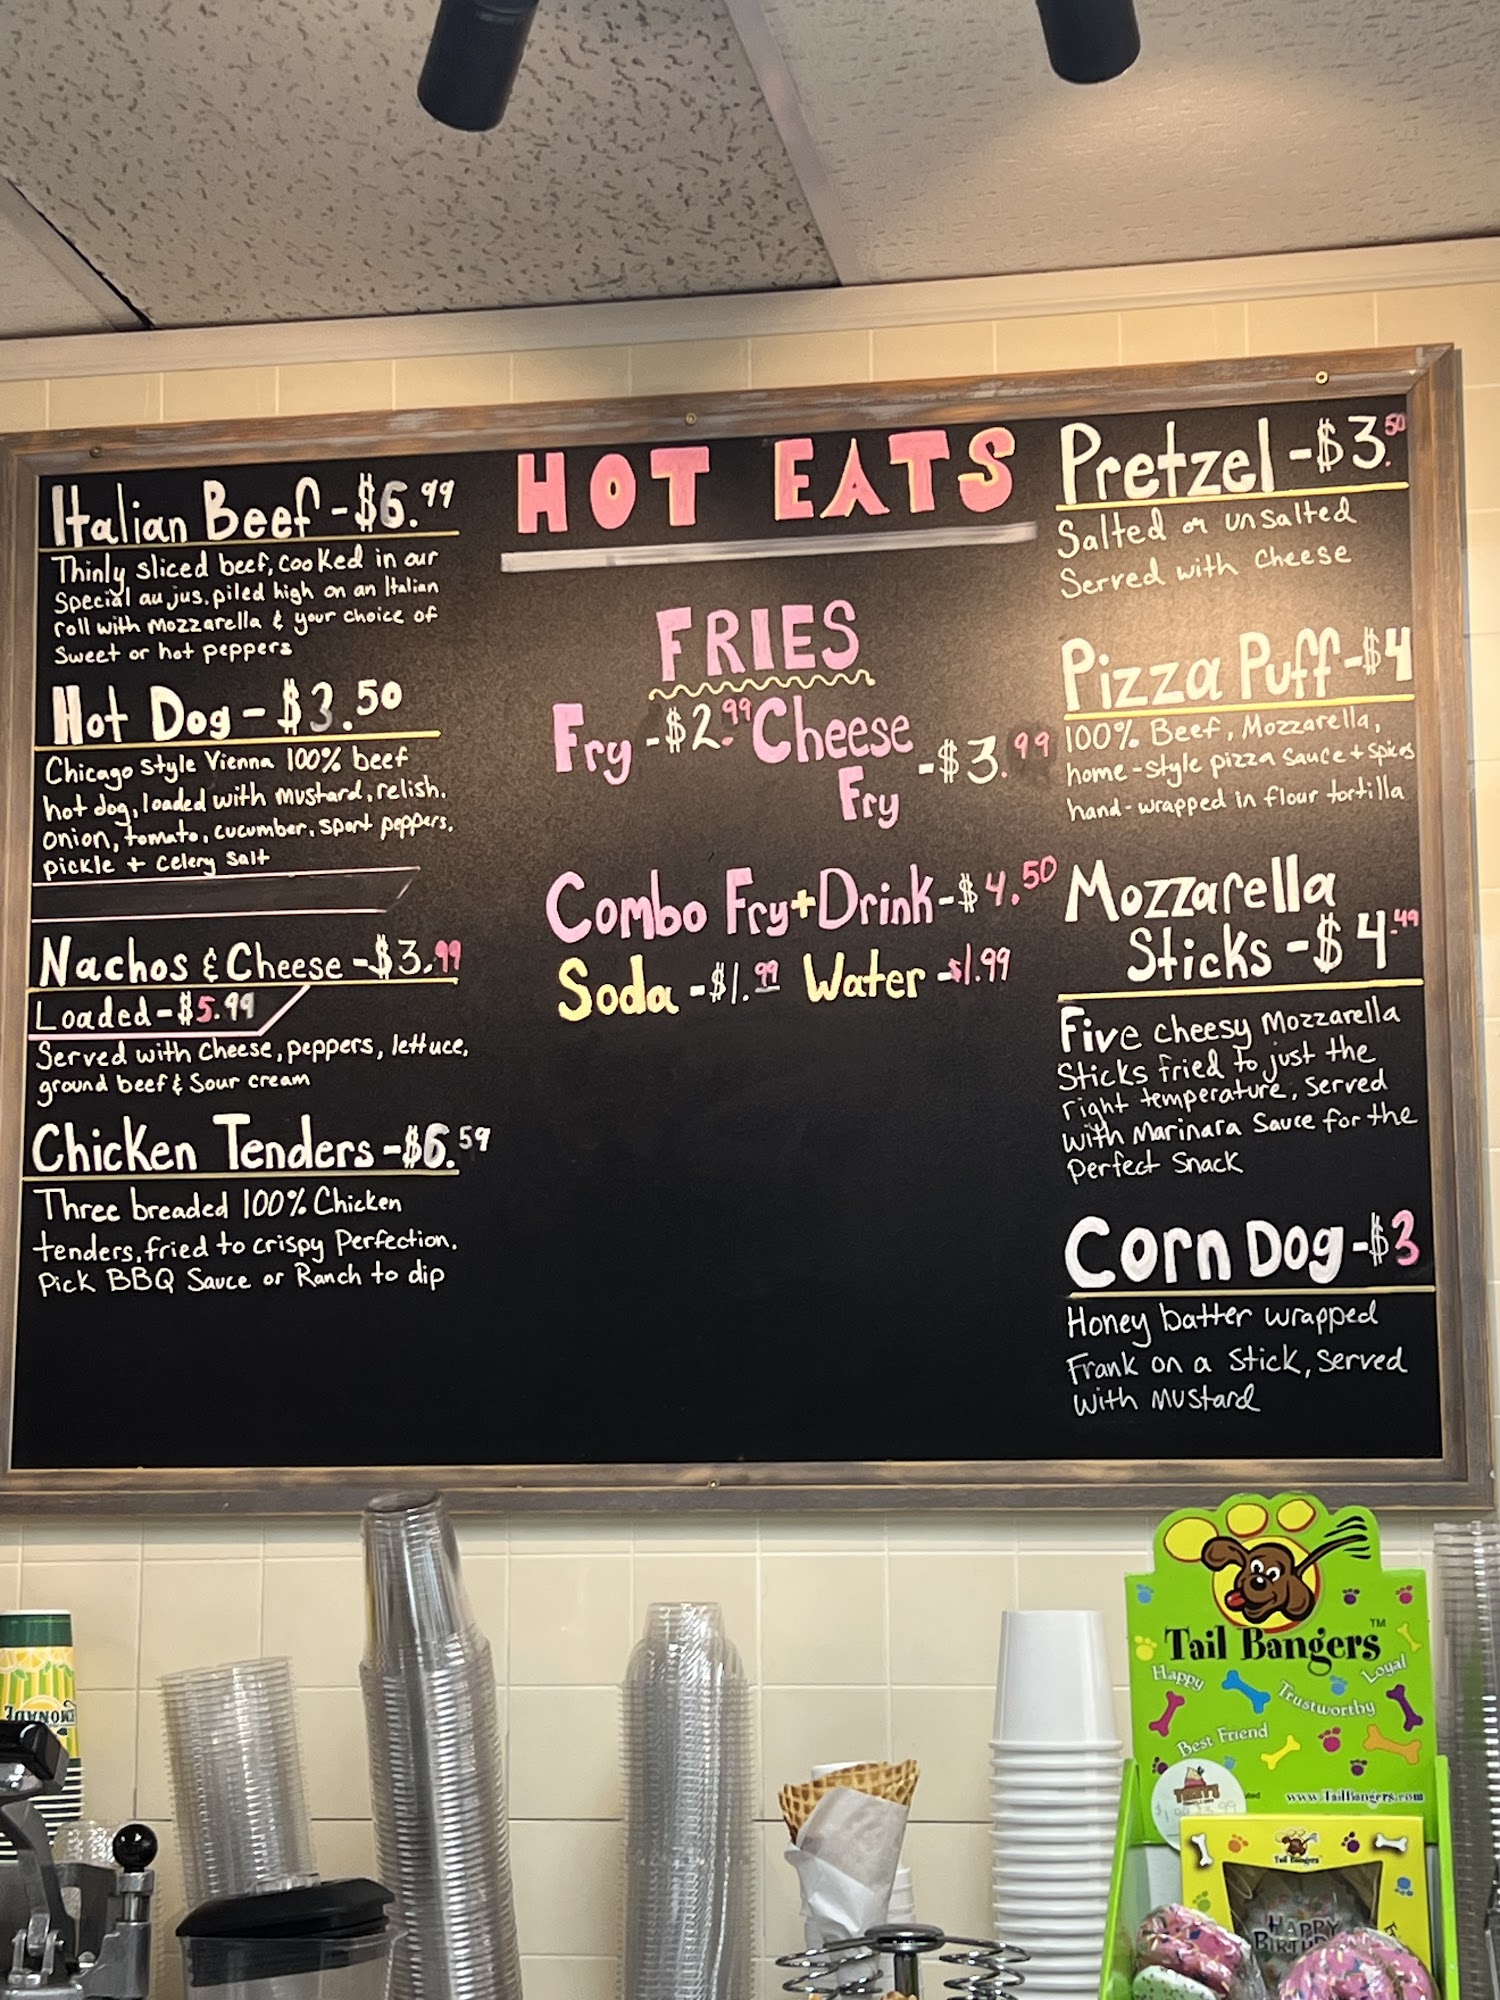 HOT EATS
Italian Beef - $6.99
Thinly sliced beef, cooked in our
Special au jus, piled high on an Italian
roll with Mozzarella & your choice of
Sweet or hot peppers
Hot Dog - $3.50
Chicago Style Vienna 100% beef
hot dog, loaded with mustard, relish,
onion, tomato, cucumber, sport peppers,
pickle + Celery Salt
Nachos & Cheese - $3.99
Loaded - $5.99
Served with Cheese, peppers, lettuce,
ground beef & Sour cream
Chicken Tenders - $6.59
Three breaded 100% Chicken
tenders, fried to crispy Perfection.
Pick BBQ Sauce or Ranch to dip
FRIES
Fry - $2.99
Cheese
Fry - $3.99
Combo Fry + Drink - $4.50
Soda - $1.99 Water - $1.99
Pretzel - $3.50
Salted or unsalted
Served with Cheese
Pizza Puff - $4
100% Beef, Mozzarella,
home-style pizza sauce + spices
hand-wrapped in flour tortilla
Mozzarella
Sticks - $4.49
Five cheesy Mozzarella
Sticks fried to just the
right temperature, Served
with Marinara Sauce for the
perfect Snack
Corn Dog - $3
Honey batter wrapped
Frank on a Stick, Served
with Mustard
LEMONADE
Tail Bangers™
Happy
Loyal
Trustworthy
Best Friend
www.TailBangers.com
Tail Bangers
HAPPY